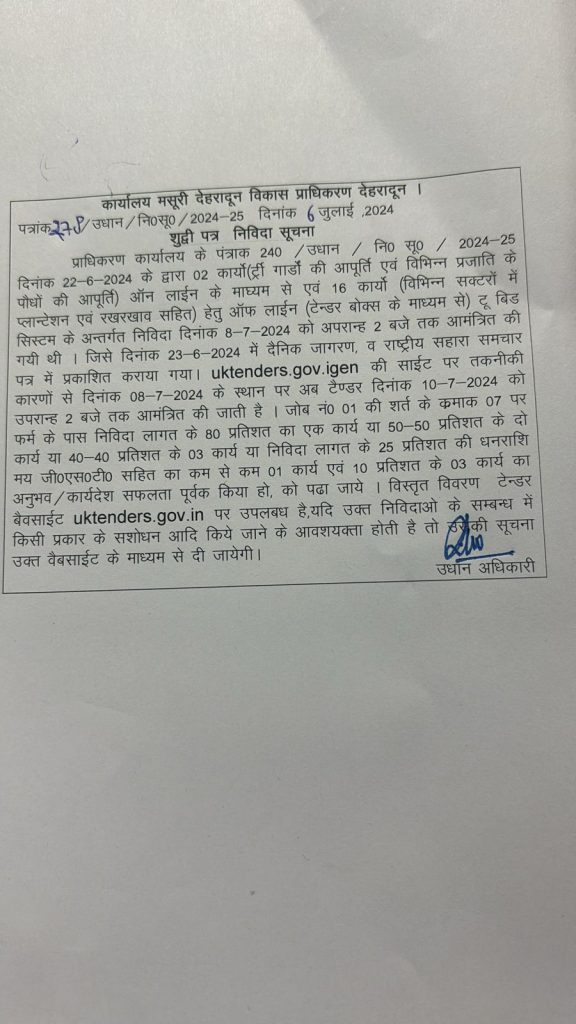 कार्यालय मसूरी देहरादून विकास प्राधिकरण देहरादून ।
पत्रांक /उधान/नि0सू0/2024-25 दिनांक 6 जुलाई ,2024
शुद्वी पत्र निविदा सूचना
प्राधिकरण कार्यालय के पंत्राक 240 /उधान / नि0 सू0 / 2024-25
दिनांक 22-6-2024 के द्वारा 02 कार्यो(ट्री गार्डो की आपूर्ति एवं विभिन्न प्रजाति के
पौधों की आपूर्ति) ऑन लाईन के माध्यम से एवं 16 कार्यो (विभिन्न सक्टरों में
प्लान्टेशन एवं रखरखाव सहित) हेतु ऑफ लाईन (टेन्डर बोक्स के माध्यम से) टू बिड
सिस्टम के अन्तर्गत निविदा दिनांक 8-7-2024 को अपरान्ह 2 बजे तक आमंत्रित की
गयी थी । जिसे दिनांक 23-6-2024 में दैनिक जागरण, व राष्ट्रीय सहारा समचार
पत्र में प्रकाशित कराया गया। uktenders.gov.igen की साईट पर तकनीकी
कारणों से दिनांक 08-7-2024 के स्थान पर अब टैण्डर दिनांक 10-7-2024 को
उपरान्ह 2 बजे तक आमंत्रित की जाती है । जोब नं0 01 की शर्त के क्रमाक 07 पर
फर्म के पास निविदा लागत के 80 प्रतिशत का एक कार्य या 50-50 प्रतिशत के दो
कार्य या 40-40 प्रतिशत के 03 कार्य या निविदा लागत के 25 प्रतिशत की धनराशि
मय जी0एस0टी0 सहित का कम से कम 01 कार्य एवं 10 प्रतिशत के 03 कार्य का
अनुभव/कार्यदेश सफलता पूर्वक किया हो, को पढा जाये । विस्तृत विवरण टेन्डर
बैवसाईट uktenders.gov.in पर उपलबध है,यदि उक्त निविदाओ के सम्बन्ध में
किसी प्रकार के सशोधन आदि किये जाने के आवशयक्ता होती है तो उसकी सूचना
उक्त वैबसाईट के माध्यम से दी जायेगी।
उधान अधिकारी